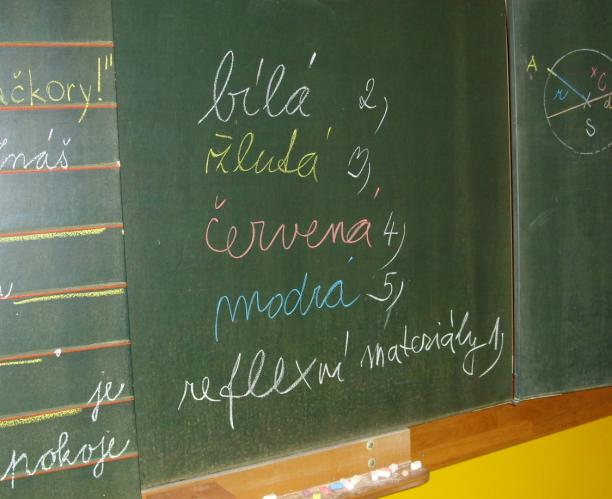 ačkory!"
náš
je
pokoje
bílá 2,
žlutá 3,
červená 4,
modrá 5,
reflexní materiály 1,
A
r
S
C
d